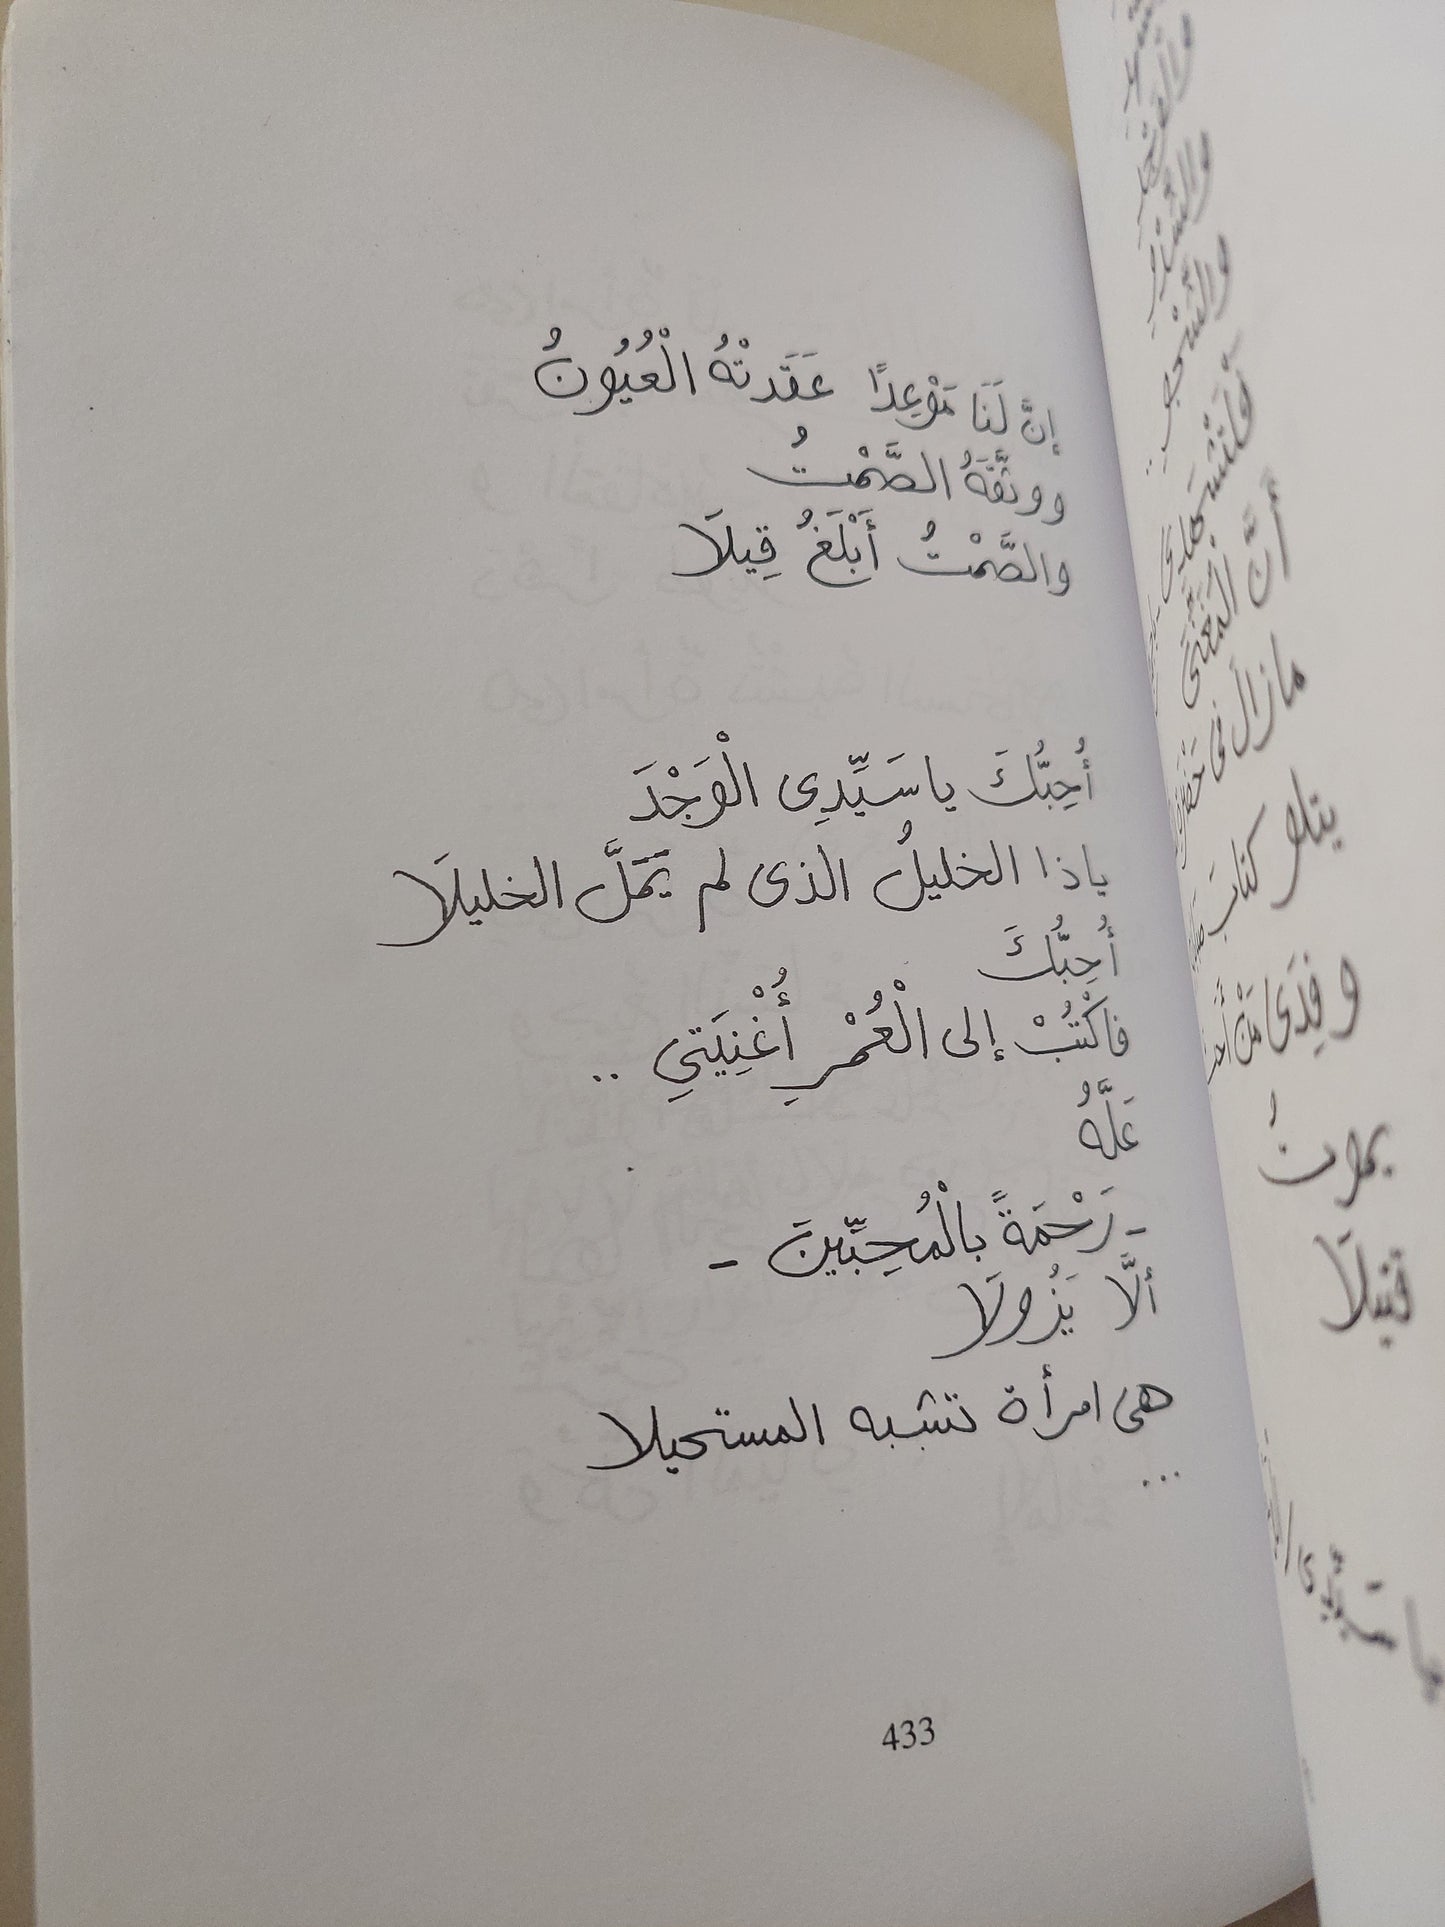 إنَّ لَنَا مَوْعِدًا عَقَدتْهُ الْعُيُونُ
ووثَّقَهُ الصَّمْتُ
والصَّمْتُ أَبْلَغُ قِيلَا
أُحِبُّكَ ياسَيِّدِى الْوَجْدَ
ياذا الخليلُ الذى لم يَمَلَّ الخليلَا
أُحِبُّكَ
فاكْتُبْ إلى الْعُمْرِ أُغْنِيَتِي ..
عَلَّهُ
- رَحْمَةً بالْمُحِبِّينَ -
ألَّا يَزُولَا
هى امرأة تشبه المستحيلا
...
433
أنَّ الْمُغَنِّى
مازال فى
يتلو كتابَ
وفِدَى مَنْ
يموتُ
قتيلَا